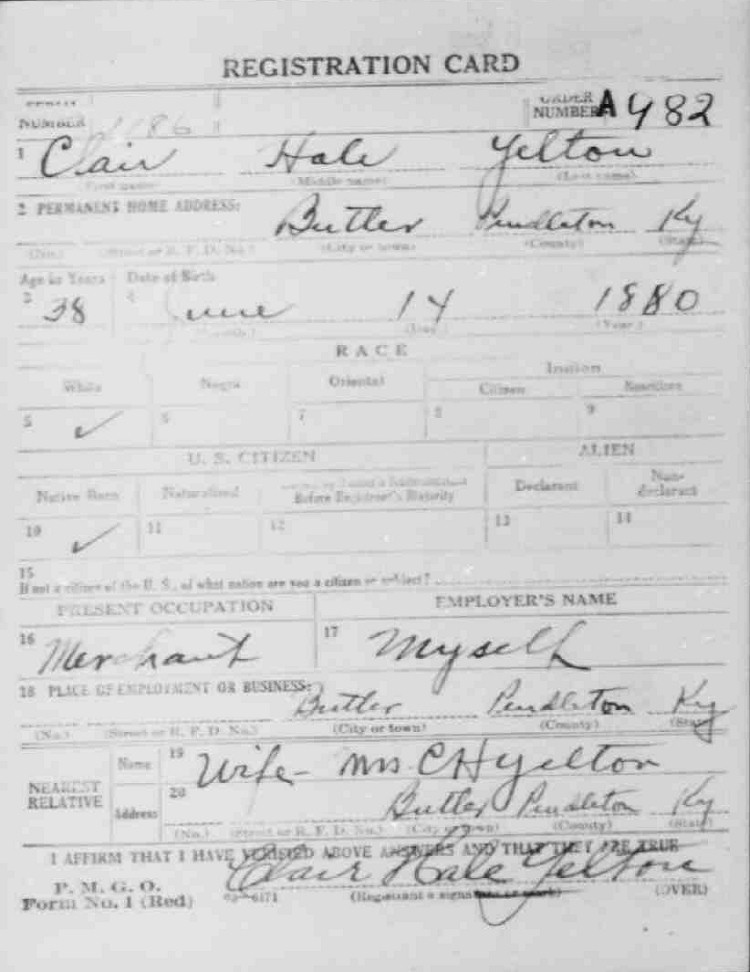 REGISTRATION CARD
SERIAL NUMBER 186 ORDER NUMBER A 982
1 Clair Hale Yelton
(First name) (Middle name) (Last name)
2 PERMANENT HOME ADDRESS: Butler Pendleton Ky
(No.) (Street or R. F. D. No.) (City or town) (County) (State)
Age in Years Date of Birth
3 38 4 June 14 1880
(Month.) (Day.) (Year.)
RACE
White Negro Oriental Indian
Citizen Noncitizen
5 ✓ 6 7 8 9
U. S. CITIZEN ALIEN
Native Born Naturalized Citizen by Father's Naturalization Before Registrant's Majority Declarant Non-declarant
10 ✓ 11 12 13 14
15
If not a citizen of the U. S., of what nation are you a citizen or subject?
PRESENT OCCUPATION EMPLOYER'S NAME
16 Merchant 17 Myself
18 PLACE OF EMPLOYMENT OR BUSINESS: Butler Pendleton Ky
(No.) (Street or R. F. D. No.) (City or town) (County) (State)
NEAREST RELATIVE
Name 19 Wife - Mrs C H Yelton
Address 20 Butler Pendleton Ky
(No.) (Street or R. F. D. No.) (City or town) (County) (State)
I AFFIRM THAT I HAVE VERIFIED ABOVE ANSWERS AND THAT THEY ARE TRUE
P. M. G. O.
Form No. 1 (Red) Clair Hale Yelton
(Registrant's signature or mark) (OVER)